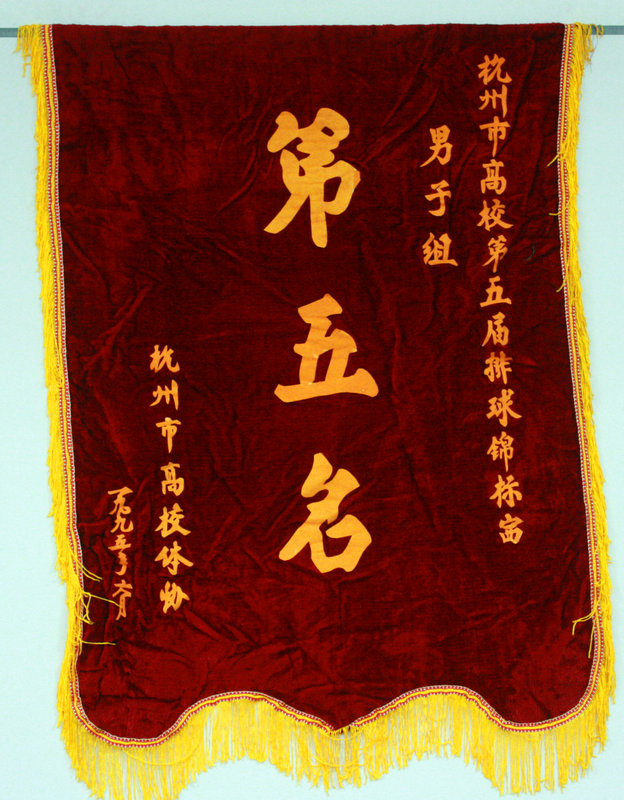 杭州市高校第五届排球锦标赛
男子组
第五名
杭州市高校体协
一九九五年六月